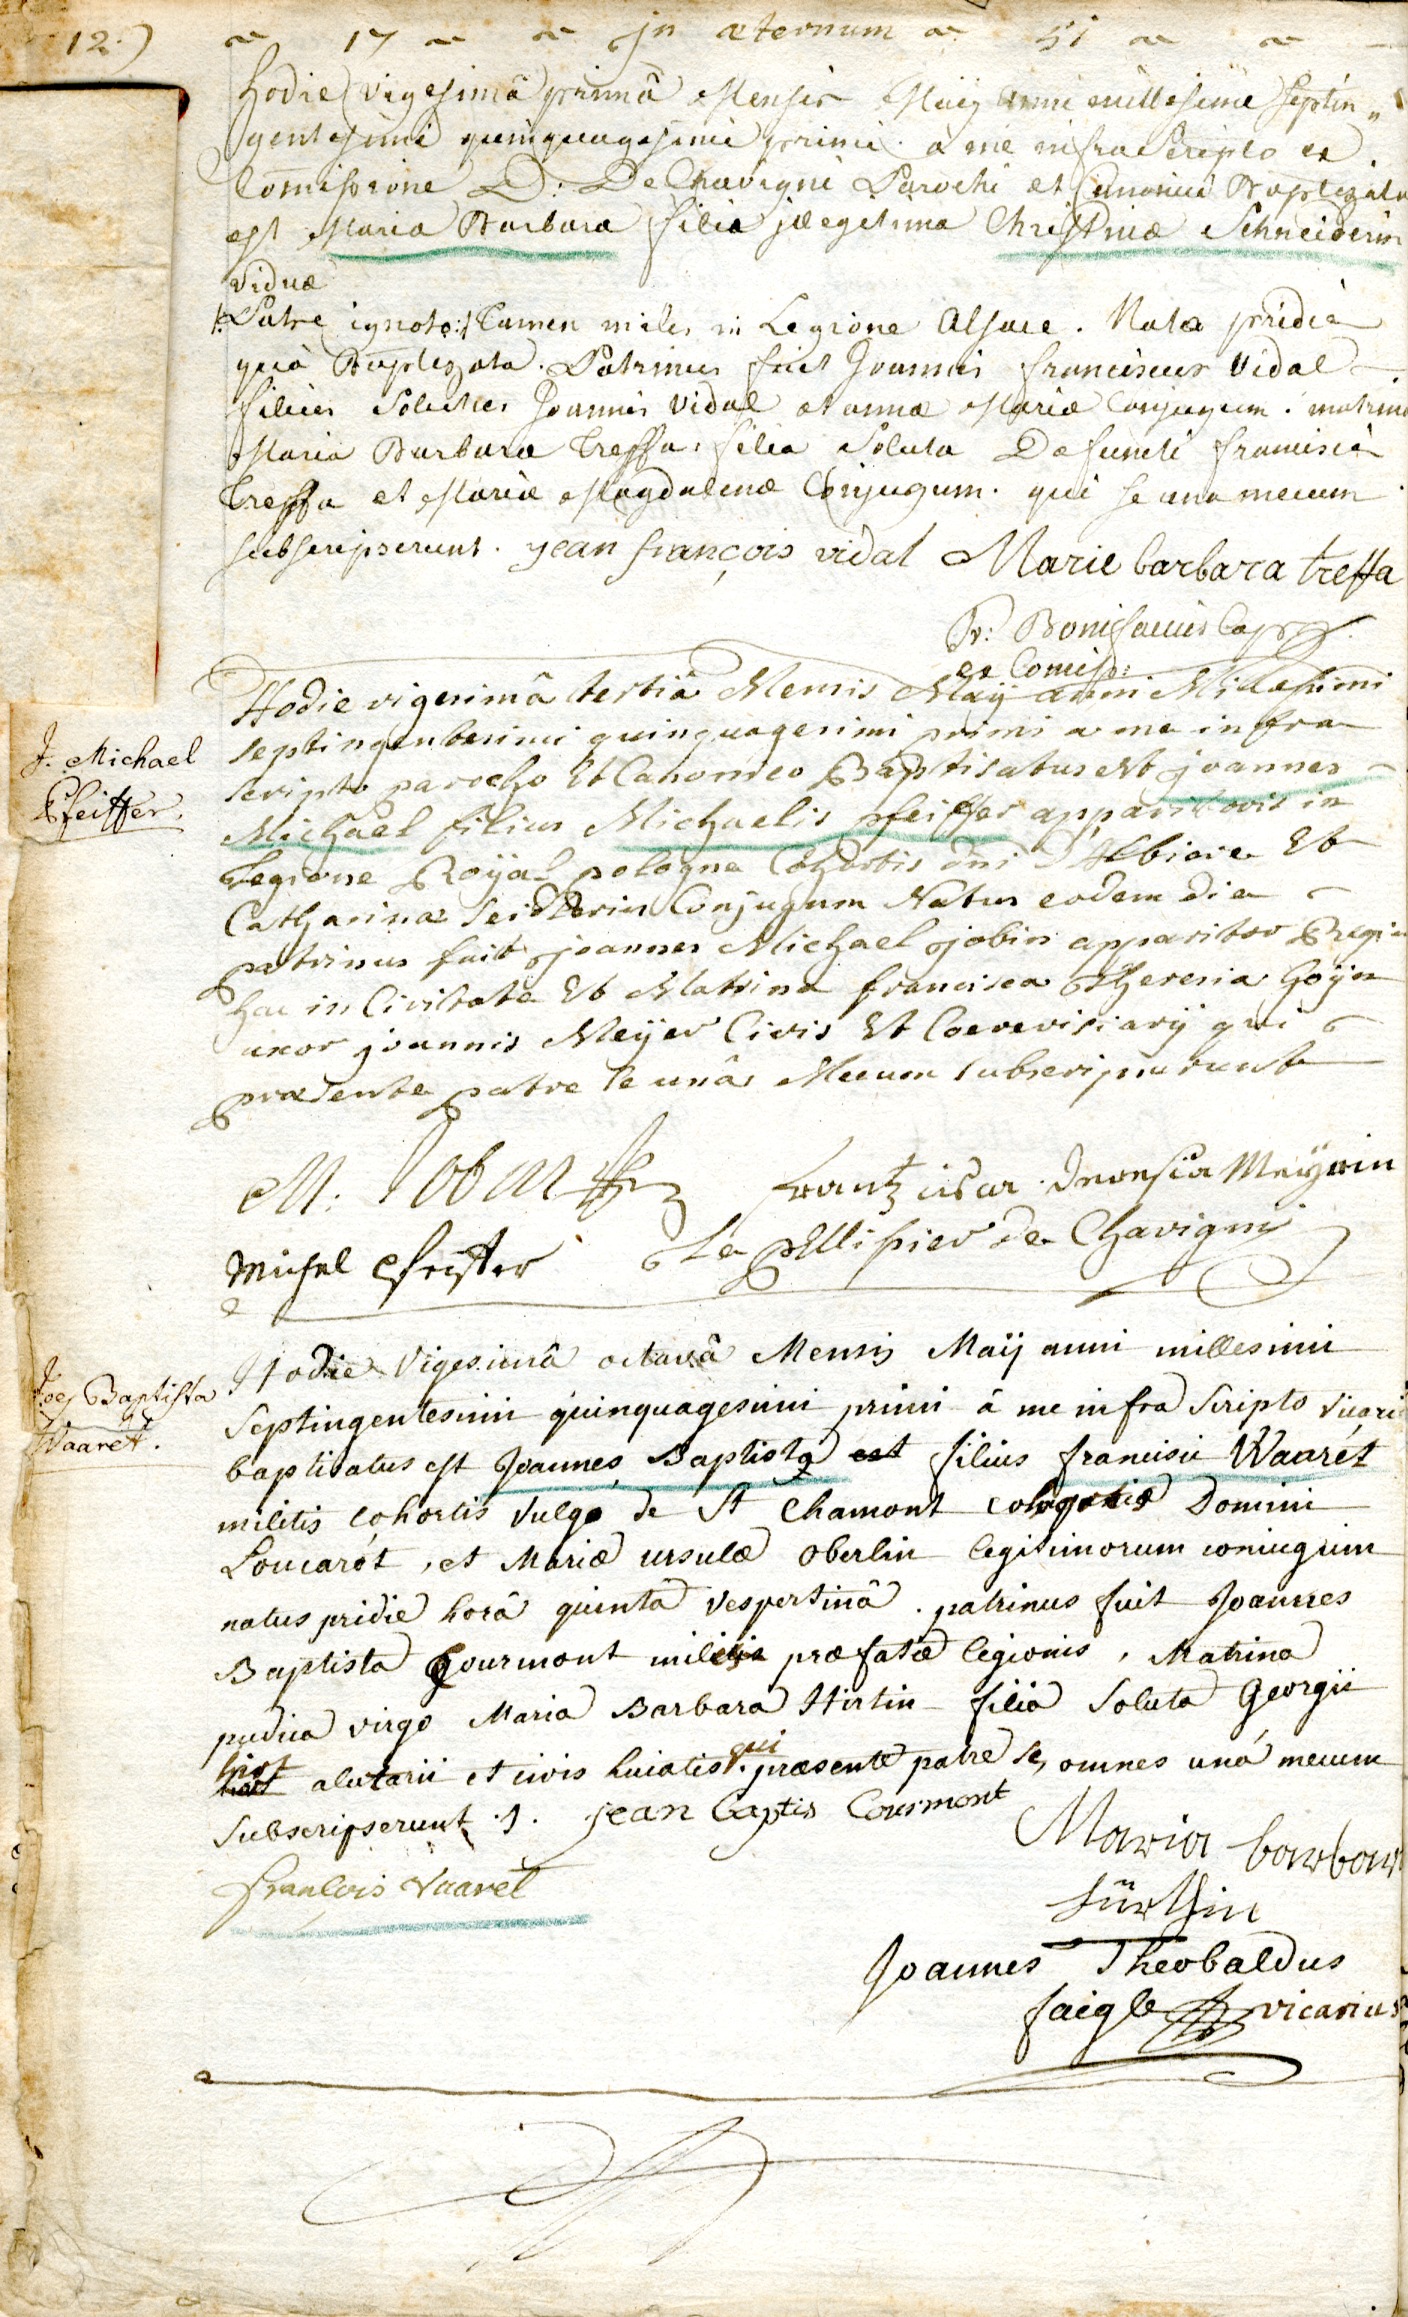 12.) 17 in æternum 51
hodie vigesimâ primâ Mensis Maÿ anni millesimi septin„
gentesimi quinquagesimi primi a me infra scripto ex
Comissione D: De Chavigni Parochi et Canonici Baptizata
est Maria Barbara filia jllegitima Christinæ Schneiderin
viduæ
/:Patre ignoto:/ tamen miles in Legione Alsace. Nata pridie
quà Baptezata. Patrinus fuit Joannes franciscus Vidal
filius Solutus Joannis Vidal et annæ Mariæ Conjugum. matrina
Maria Barbara Treffa, filia Soluta Defuncti francisci
Treffa et Mariæ Magdalenæ Conjugum. qui se una mecum
subscripserunt. jean françois vidal Marie barbara treffa
Fr: Bonifacius Cap
ex Comiss:
Hodie vigesimâ tertiâ Mensis Maÿ anni Millesimi
septingentesimi quinquagesimi primi a me infra
J. Michael
Pfeiffer.
scripto parocho Et Canonico Baptisatus est joannes
Michael filius Michaelis pfeiffer apparitoris in
Legione Roÿal pologne Cohortis dni D'Albiere Et
Catharinæ Seidlerin Conjugum Natus eodem die
patrinus fuit joannes Michael jobin apparitor Regius
hac in Civitate Et Matrina francisca Theresia hoÿn
uxor joannis Meÿer Civis Et Coerevisiarÿ qui
præsente patre se unâ Mecum subscripserunt
M. Jobin Frantzisca Deresia Meÿerin
Michel Pfeiffer Le pellissier de Chavigni
Hodie Vigesimâ octavâ Mensis Maÿ anni millesimi
Joes Baptista
Waaret.
Septingentesimi quinquagesimi primi â me infra Scripto vicari
baptisatus est Joannes Baptista est filius francisci Waarét
militis cohortis vulgo de St Chamont Domini
Loucarót, et Mariæ ursulæ oberlin legitimorum coniugum
natus pridie horâ quintâ vespertinâ. patrinus fuit Joannes
Baptista Gourmont præfatæ legionis, Matrina
pudica virgo Maria Barbara Hirtin filia Soluta Georgii
hirt alutarii et civis huiatis. qui præsente patre se, omnes unâ mecum
Subscripserunt ./. jean baptis Courmont
Maria barbara
hürthin
francois Vaaret
Joannes Theobaldus
faigle vicarius